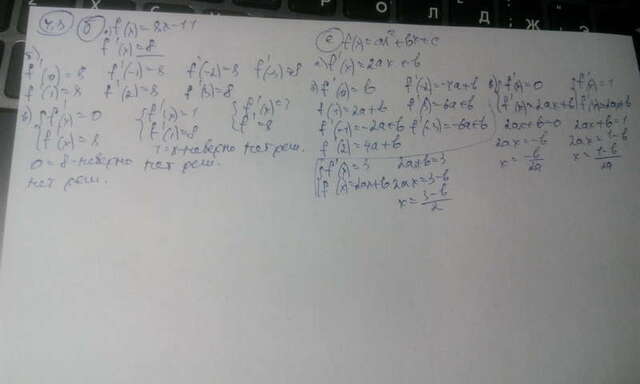 б) f(x)=8x-11
f'(x)=8
f'(0)=8 f'(-1)=8 f'(-2)=8 f'(-3)=8
f'(1)=8 f'(2)=8 f'(3)=8
в) { f'(x)=0 { f'(x)=1 { f'(x)=3
f'(x)=8 f'(x)=8 =8
0=8-неверно нет реш.
нет реш.
е) f(x)=ax²+bx+c
f'(x)=2ax+b
f'(0)=b f'(-2)=-4a+b
f'(1)=2a+b f'(3)=6a+b
f'(-1)=-2a+b f'(-3)=-6a+b
f'(2)=4a+b
в) { f'(x)=0 { f'(x)=1
f'(x)=2ax+b f'(x)=2ax+b
2ax+b=0 2ax+b=1
2ax=-b 2ax=1-b
x=-b/2a x=1-b/2a
{ f'(x)=3 2ax+b=3
f'(x)=2ax+b 2ax=3-b
x=3-b/2